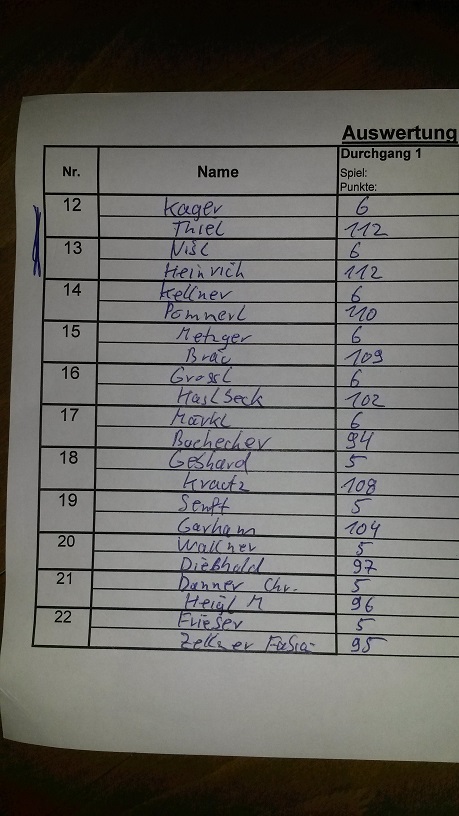 Auswertung
Nr. Name Durchgang 1
Spiel:
Punkte:
12 Kager 6
Thiel 112
13 Nißl 6
Heinrich 112
14 Kellner 6
Pommerl 110
15 Metzger 6
Bräu 109
16 Grossl 6
Haslbeck 102
17 Märkl 6
94
18 Gebhard 5
Krautz 108
19 Senft 5
Garham 104
20 Wallner 5
97
21 Danner Chr. 5
Heigl M 96
22 Frieser 5
Zellner 95